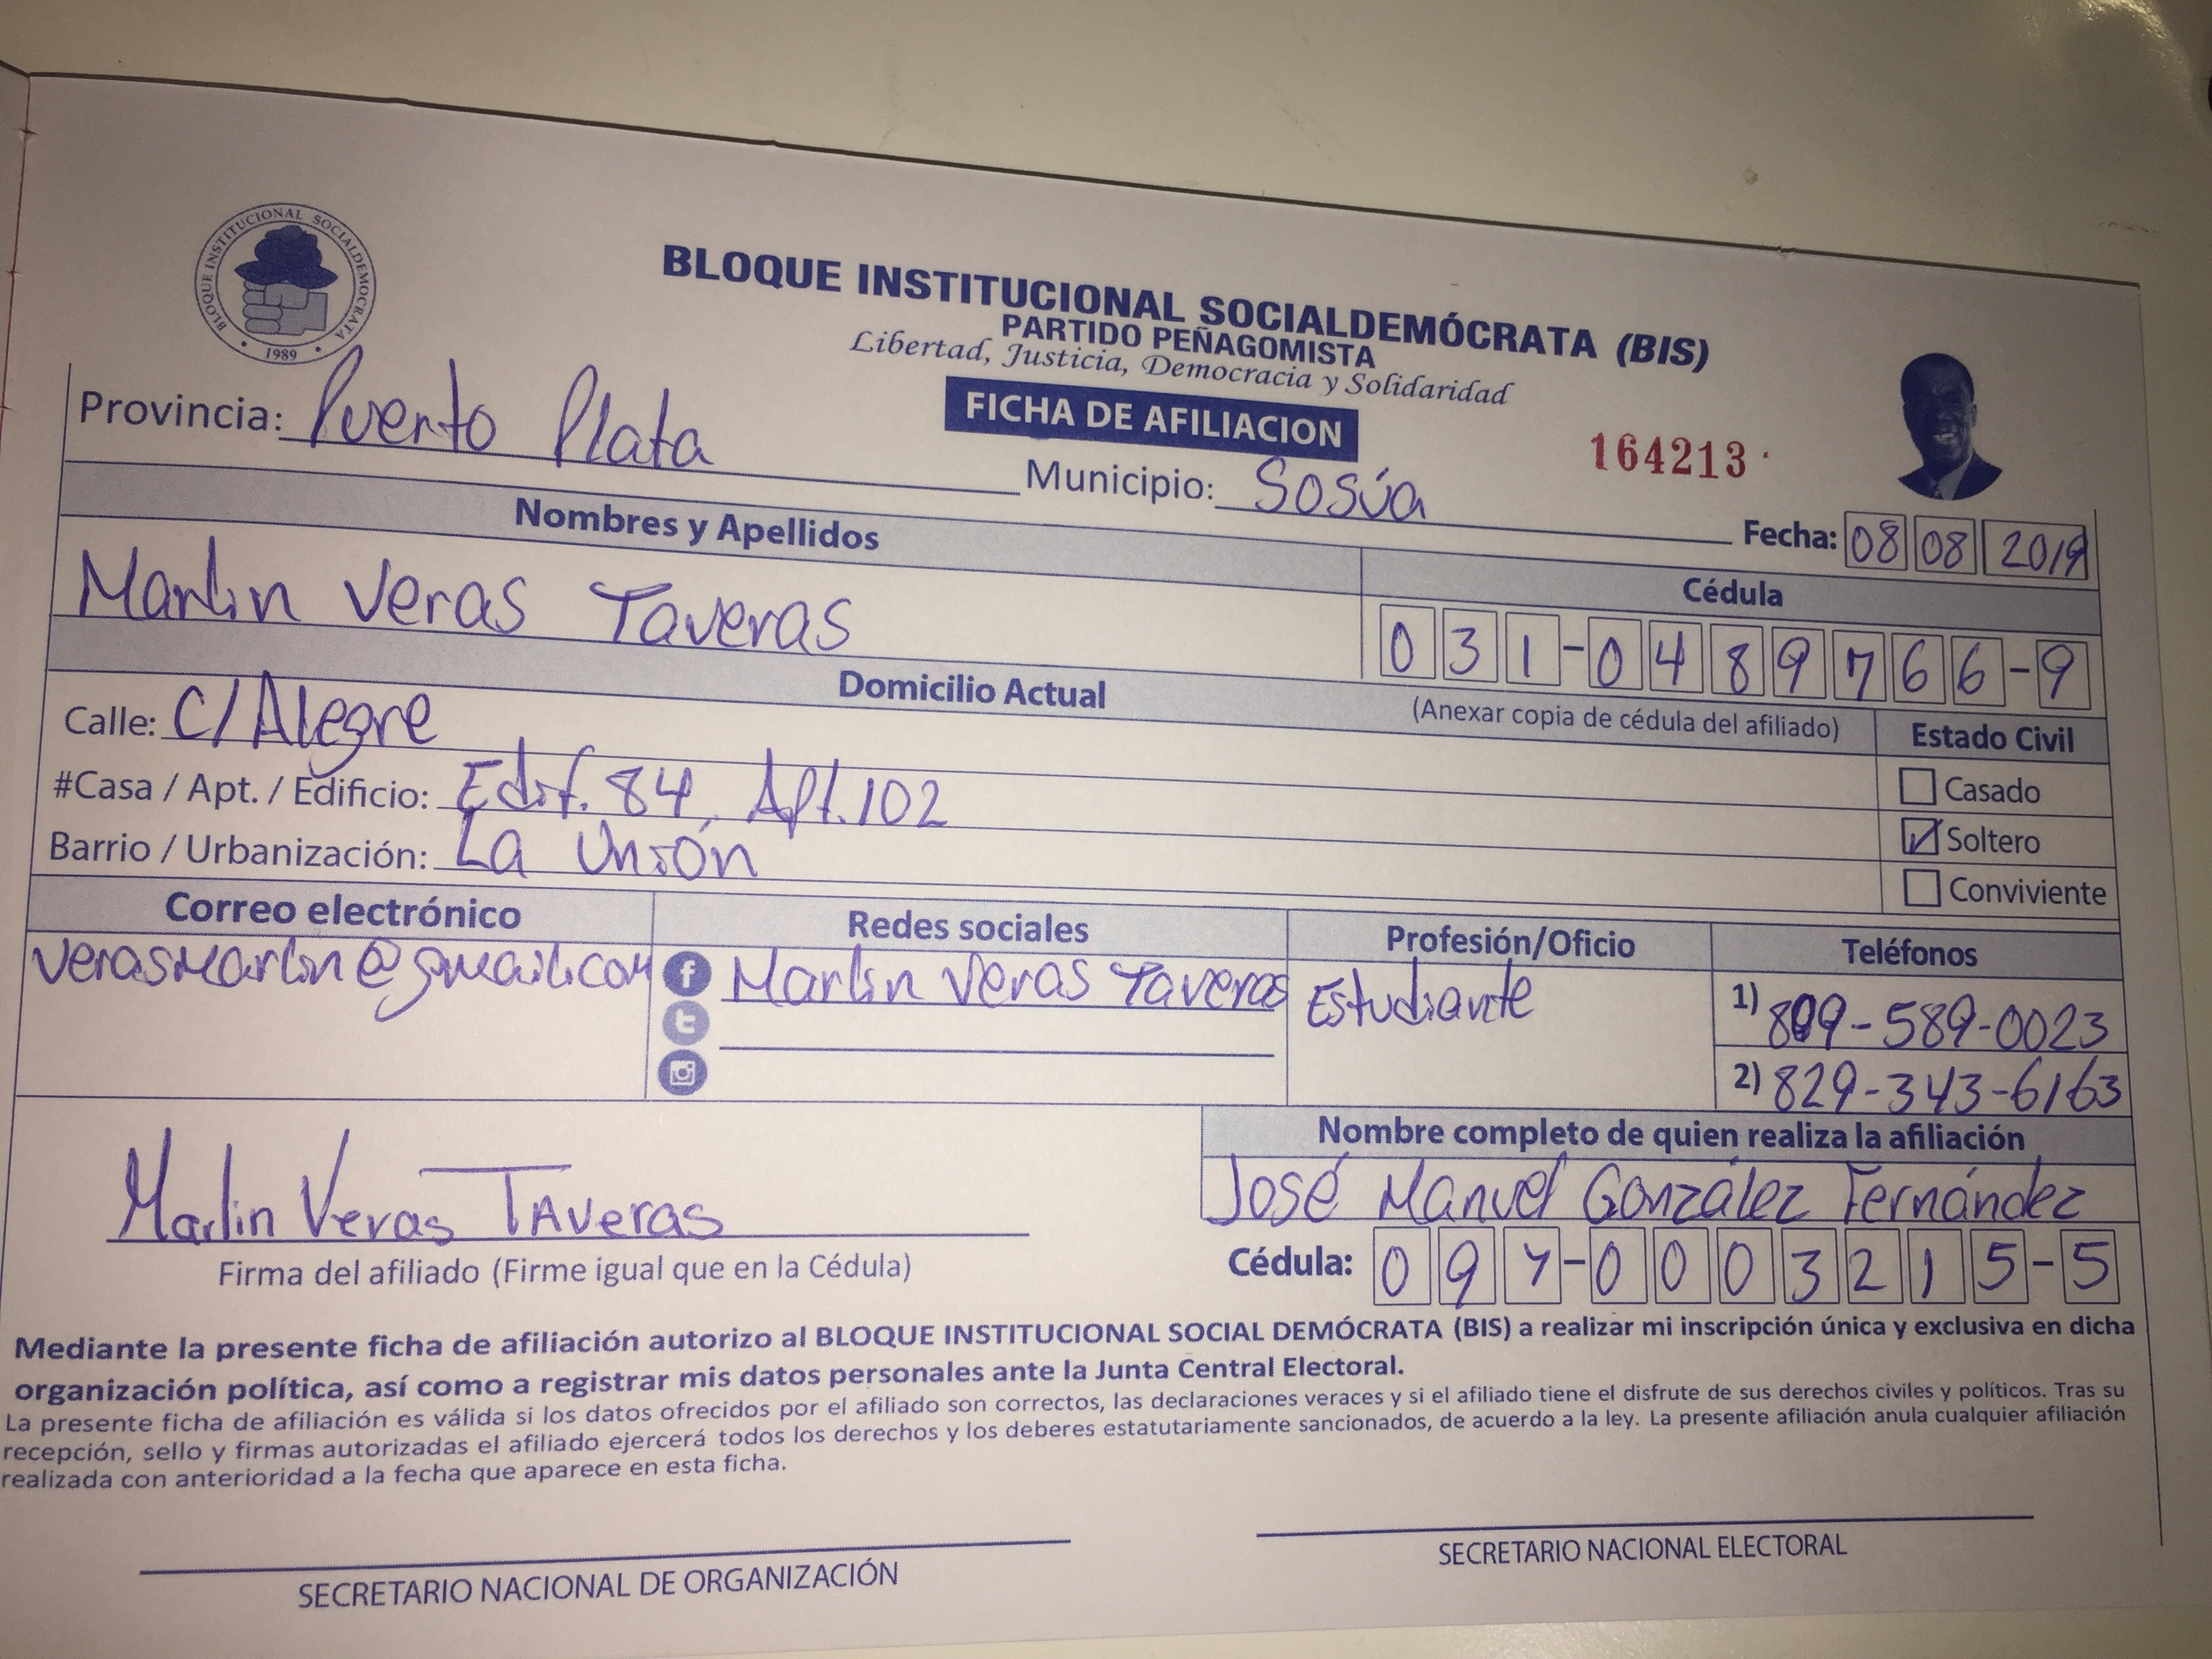 BLOQUE INSTITUCIONAL SOCIALDEMOCRATA
1989
BLOQUE INSTITUCIONAL SOCIALDEMÓCRATA (BIS)
PARTIDO PEÑAGOMISTA
Libertad, Justicia, Democracia y Solidaridad
FICHA DE AFILIACION
164213
Provincia: Puerto Plata
Municipio: Sosúa
Fecha: 08 08 2019
Nombres y Apellidos
Marlin Veras Taveras
Cédula
031-0489766-9
(Anexar copia de cédula del afiliado)
Domicilio Actual
Calle: C/Alegre
#Casa / Apt. / Edificio: Edif. 84, Apt. 102
Barrio / Urbanización: La Unión
Estado Civil
Casado
Soltero
Conviviente
Correo electrónico
verasmarlin@gmail.com
Redes sociales
Marlin Veras Taveras
Profesión/Oficio
Estudiante
Teléfonos
1) 809-589-0023
2) 829-343-6163
Marlin Veras TAveras
Firma del afiliado (Firme igual que en la Cédula)
Nombre completo de quien realiza la afiliación
José Manuel González Fernández
Cédula: 097-0003215-5
Mediante la presente ficha de afiliación autorizo al BLOQUE INSTITUCIONAL SOCIAL DEMÓCRATA (BIS) a realizar mi inscripción única y exclusiva en dicha
organización política, así como a registrar mis datos personales ante la Junta Central Electoral.
La presente ficha de afiliación es válida si los datos ofrecidos por el afiliado son correctos, las declaraciones veraces y si el afiliado tiene el disfrute de sus derechos civiles y políticos. Tras su
recepción, sello y firmas autorizadas el afiliado ejercerá todos los derechos y los deberes estatutariamente sancionados, de acuerdo a la ley. La presente afiliación anula cualquier afiliación
realizada con anterioridad a la fecha que aparece en esta ficha.
SECRETARIO NACIONAL DE ORGANIZACIÓN
SECRETARIO NACIONAL ELECTORAL